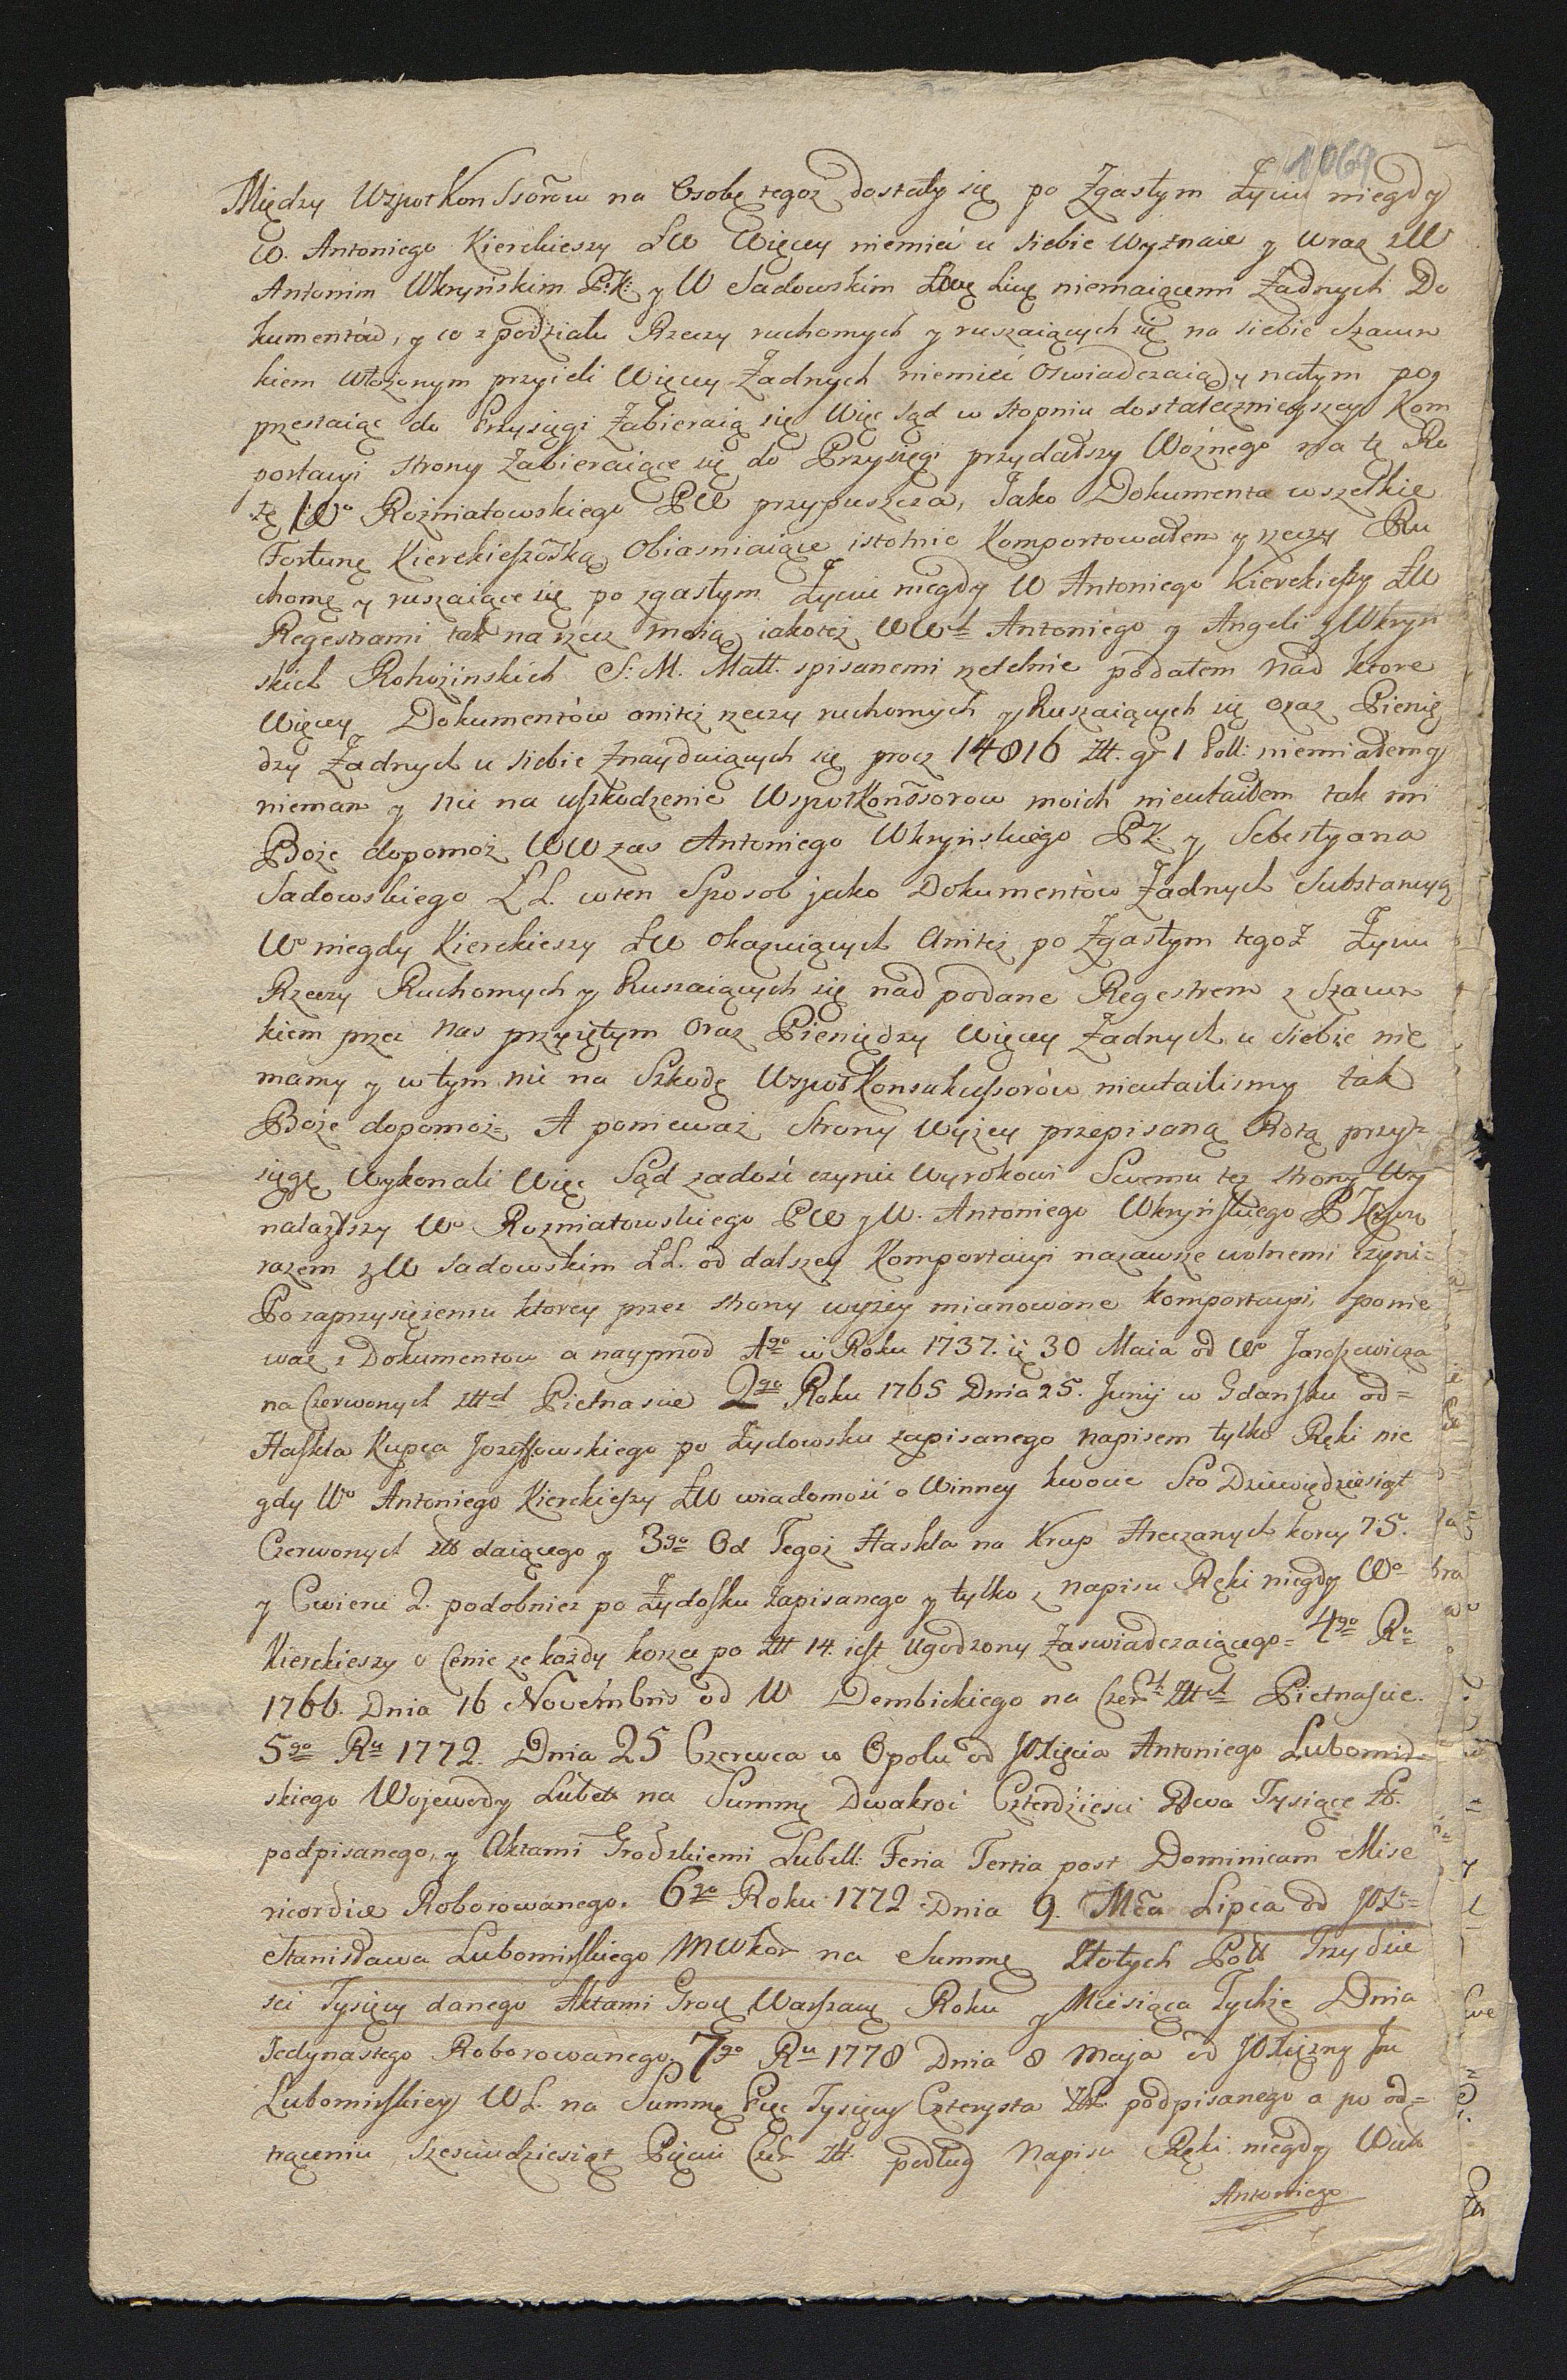 1069
Między WspołKonSsorow na Osobę tegoż dostały się po Zgasłym Życiu niegdy
W. Antoniego Kierekieszy ŁW Więcey niemieć u siebie Wyznaie y wraz z W
Antonim Wkryńskim P:K: y W Sadowskim niemaiącemi Żadnych Do
kumentów, y co z podziału Rzeczy ruchomych y ruszaiących się na siebie Szacun
kiem włożonym przyieli Więcey Żadnych niemieć Oswiadczaią y natym pop
przestaiąc do Przysięgi Zabieraią się Więc Sąd w stopniu dostatecznieyszey Kom
portacyi strony zabieraiące się do Przysięgi przydawszy Woźnego na tę Ro
tę Wo Rozniatowskiego PW przypuszcza, Jako Dokumenta wszelkie
Fortunę Kierekieszoską Obiasniaiące istotnie Komportowałem y rzeczy Ru
chome y ruszaiące się po zgasłym Życiu niegdy W Antoniego Kierekieszy ŁW
Regestrami tak na rzecz moią iakoteż WWch Antoniego y Angeli z Wkryń
skich Rohozinskich S: M. Matt. spisanemi rzetelnie podałem nad ktore
Więcey Dokumentów anitez rzeczy ruchomych y Ruszaiących się oraz Pienię
dzy Żadnych u siebie znayduiących się procz 14816 Złł. gr 1 Poll: niemiałem y
nieman y nic na uszkodzenie Wspołkonssorow moich nieutaiłem tak mi
Boże dopomoż WW zas Antoniego Wkryńskiego PK. y Sebestyana
Sadowskiego Ł L. w ten Sposob jako Dokumentòw Żadnych Substancyą
Wo niegdy Kierekieszy ŁW okazuiących Anitez po Zgasłym tegoż Życiu
Rzeczy Ruchomych y Ruszaiących się nad podane Regestrem z Szacun
kiem przez nas przyiętym oraz Pieniędzy Więcey Żadnych u siebie nie
mamy y w tym nic na Szkodę WspołKonsukcessorów nieutailismy tak
Boże dopomoż= A ponieważ Strony wyżey przepisaną Rotą przy=
sięgę wykonali Więc Sąd zadość czynić wyrokowi Swemu też strony Wy
nalazłszy Wo Rozniatowskiego PW y W. Antoniego Wkryńskiego P
razem z W Sadowskim Ł L. od dalszey Komportacyi nazawsze wolnemi czyni=
Po zaprzysiężeniu ktorey przez strony wyżey mianowane komportacyi, ponie
waż z Dokumentow a nayprzod 1go w Roku 1737. 30 Maia od Wo Jaroszewicza
na Czerwonych złłch Pietnascie 2go Roku 1765 Dnia 25. Junij w Gdansku od=
Haskla Kupca Jozeffowskiego po Żydowsku zapisanego napisem tylko Ręki nie
gdy Wo Antoniego Kierekieszy ŁW wiadomość o Winney kwocie Sto Dziewiędziesiąt
Czerwonych Złł daiącego y 3go Od Tegoż Haskla na Krup Hreczanych korcy 75.
y Cwierci 2. podobniez po Żydosku zapisanego y tylko z napisu Ręki niegdy Wo
Kierekieszy o Cenie ze każdy korzec po Złł 14. iest Ugodzony Zaswiadczaiącego= 4go Ru
1766. Dnia 16 Novembris od W Dembickiego na Czerch Złłch Pietnascie.
5go Ru 1772. Dnia 25 Czerwca w Opolu od JOXięcia Antoniego Lubomir=
skiego Wojewody Lubell na Summę Dwakroć Czterdziesci Dwa Tysiące Zł.
podpisanego, y Aktami Grodzkiemi Lubell: Feria Tertia post Dominicam Mise
ricordiæ Roborowanego. 6go Roku 1772 Dnia 9. Mca Lipca od JOX=
Stanisława Lubomirskiego MWKor na Summę Złotych Poll Trzydzie
sci Tysięcy danego Aktami Grod. Warszawę Roku y Miesiąca Tychże Dnia
Jedynastego Roborowanego. 7go Ru 1778 Dnia 8 Maja od JOXiężny Im
Lubomirskiey WL. na Summę Pięc Tysięcy Czterysta Złł. podpisanego a po od=
trąceniu Szescudziesiąt Pięciu Czer Złł. podług Napisu Ręki niegdy
Antoniego